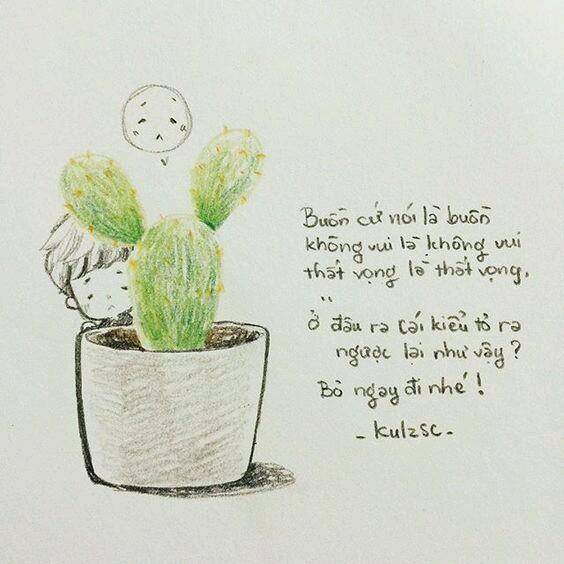 Buồn cứ nói là buồn
không vui là không vui
thất vọng là thất vọng.
"
ở đâu ra cái kiểu tỏ ra
ngược lại như vậy?
Bỏ ngay đi nhé!
- kulzsc -